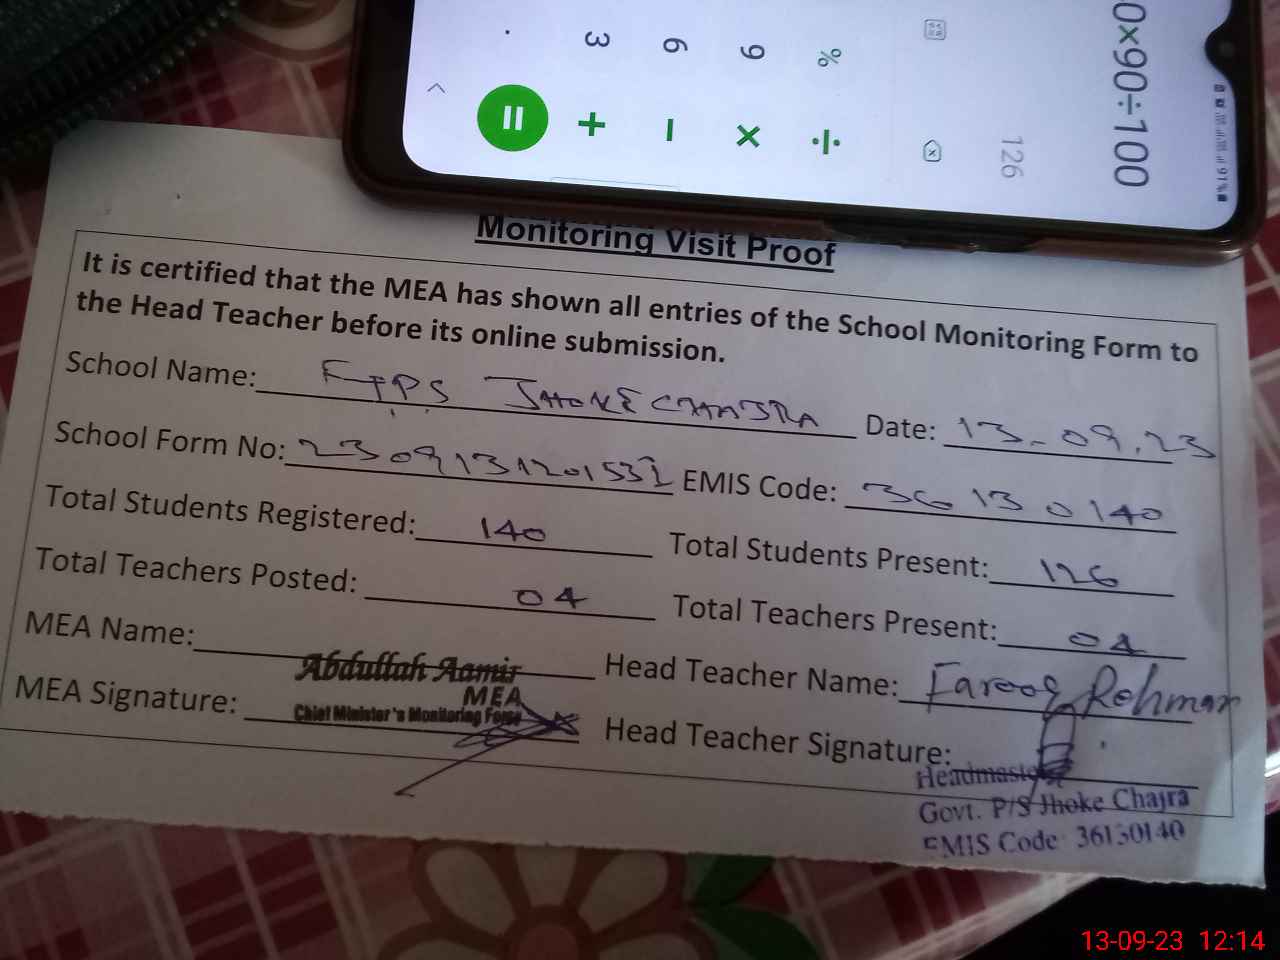 0×90÷100
126
91%
%
÷
9
×
6
−
3
+
.
=
Monitoring Visit Proof
It is certified that the MEA has shown all entries of the School Monitoring Form to
the Head Teacher before its online submission.
School Name: GPS JHOKE CHAJRA Date: 13-09.23
School Form No: EMIS Code: 36130140
Total Students Registered: 140 Total Students Present: 126
Total Teachers Posted: 04 Total Teachers Present: 04
MEA Name: Abdullah Aamir Head Teacher Name: Farooq Rehman
MEA
MEA Signature: Chief Minister's Monitoring Force Head Teacher Signature:
Headmaster
Govt. P/S Jhoke Chajra
EMIS Code 36130140
13-09-23 12:14